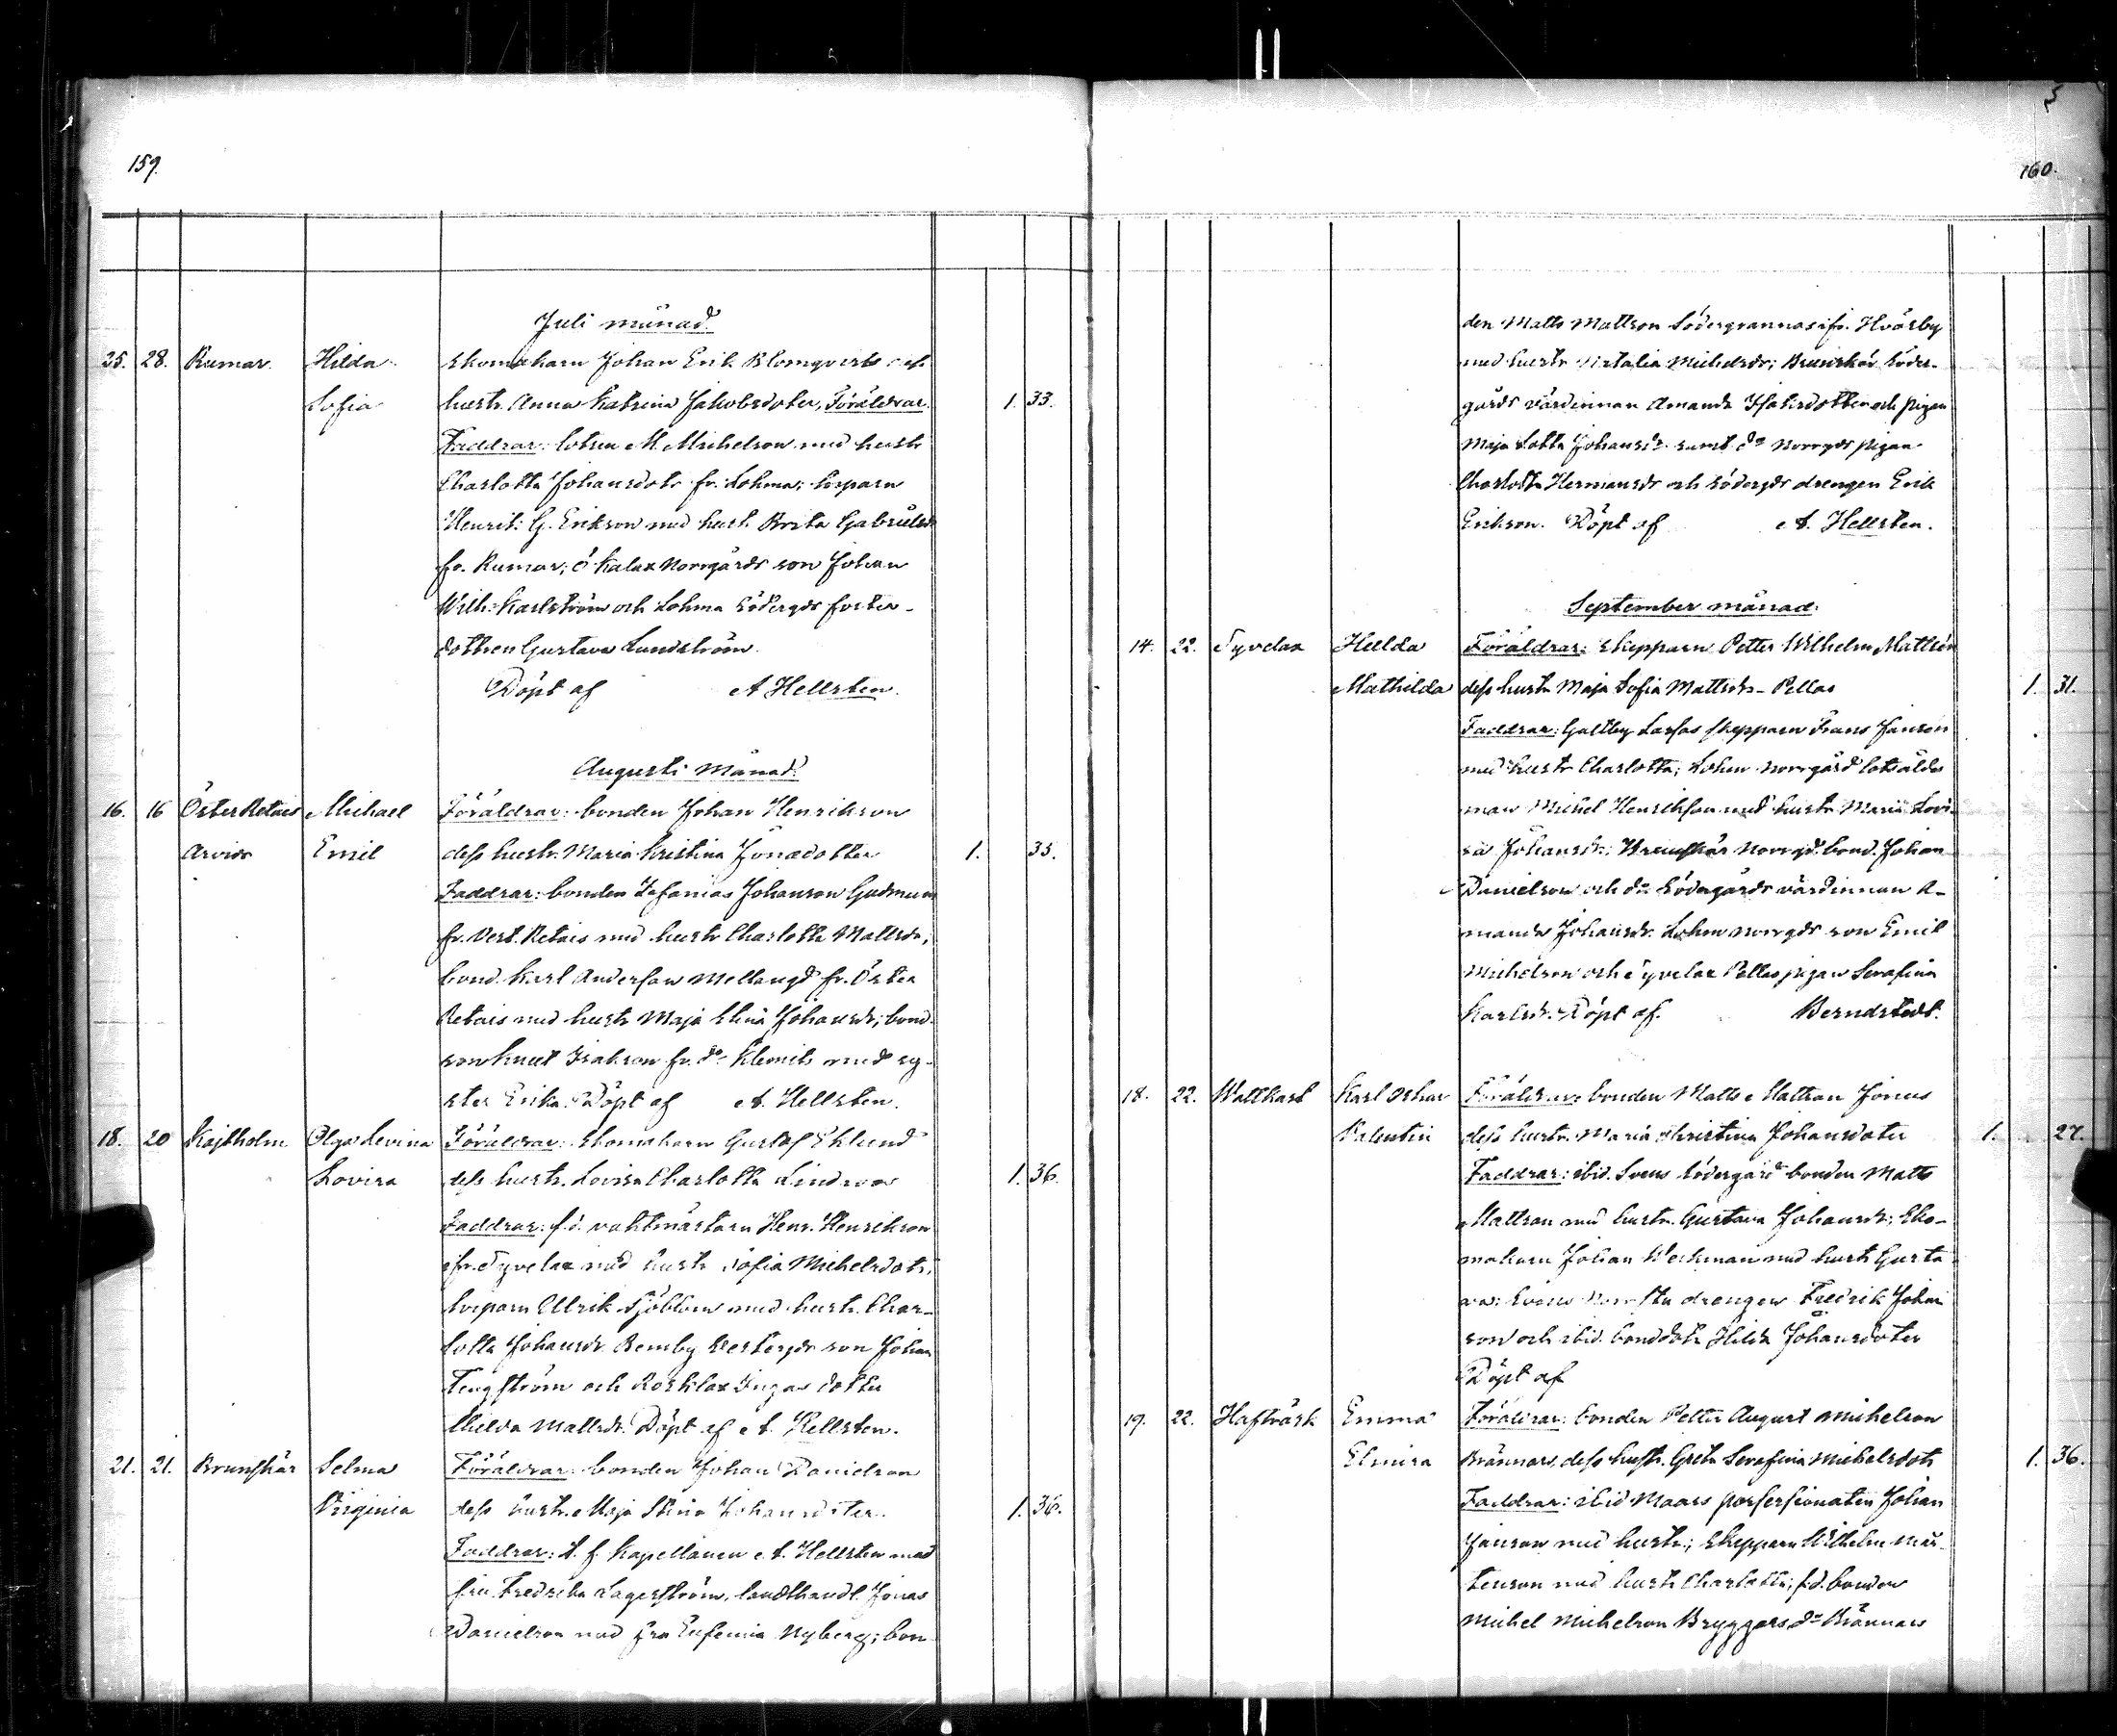 159.
Juli månad.
25. 28. Rumar. Hilda skomakarn Johan Erik Blomqvists och
Sofia hustr. Anna Katrina Jakobsdoter, Föräldrar. 1. 33.
Faddrar: lotsen M. Michelson med hustr
Charlotta Johansdotr fr. Lohm; torparn
Henrik G. Erikson med hustr Brita Gabrielsdr
fr. Rumar; o Kalax Norrgårds son Johan
Wilh. Karlström och Lohma Södergds foster-
dottren Gustava Lundström.
Döpt af A Hellsten.
Augusti Månad.
16. 16 Öster Retais Michael Föräldrar: bonden Johan Henrikson
Arvids Emil dess hustr. Maria Kristina Jonædotter 1. 35.
Faddrar: bonden Zefanias Johanson Gudmunds
fr. Vest. Retais med hustr Charlotta Mattsdr;
bond. Karl Anderson Mellangd fr. Öster
Retais med hustr Maja Stina Johansdr; bond-
son Knut Isakson fr. do Klemits med sy-
ster Erika. Döpt af A. Hellsten.
18. 20 Kajkholm Olga Levina Föräldrar: skomakarn Gustaf Eklund
Lovisa dess hustr. Lovisa Charlotta Lindroos 1. 36.
Faddrar: f.d. vaktmästarn Henr. Henrikson
ifr. Syvelax med hustr Sofia Michelsdotr;
torparn Ullrik Sjöblom med hustr. Char-
lotta Johansdr. Remby Vestergds son Johan
Tengström och Rosklax Ingas dotter
Milda Mattsdr. Döpt af A. Hellsten.
21. 21. Brunskär Selma Föräldrar: bonden Johan Danielson
Virginia dess hustr. Maja Stina Johansdoter. 1. 36.
Faddrar: t. f. Kapellanen A. Hellsten med
fru Fredrika Lagerström, landthandl. Jonas
Danielson med fru Eufemia Nyberg; bon-
160.
den Matts Mattson Södergrannas ifr. Hvarsby
med hustr Natalia Michelsdr; Brunskär Söder-
gårds värdinnan Amanda Isaksdotter och pigan
Maja Lotta Johansdr. samt do Norrgds pigan
Charlotta Hermansdr och södergds drengen Erik
Erikson. Döpt af A. Hellsten.
September månad.
14. 22. Syvelax Hulda Föräldrar: Skepparn Petter Wilhelm Mattson
Mathilda dess hustr Maja Sofia Mattsdr- Pellas 1. 31.
Faddrar: Galtby Larsas skepparn Frans Janson
med hustr Charlotta; Lohm Norrgård lotsålder
man Michel Henrikson med hustr Maria Lovi-
sa Johansdr; Brunskär Norrgd. bond. Johan
Danielson och do Södergårds värdinnan A-
manda Johansdr. Lohm norrgds son Emil
Michelson och Syvelax Pellas pigan Serafina
Karlsdr. Döpt af. Berndstedt.
18. 22. Wattkast Karl Oskar Föräldrar: bonden Matts Mattson Jonas
Valentin dess hustr. Maria Christina Johansdoter 1. 27.
Faddrar: ibid. Svens Södergård bonden Matts
Mattson med hustr. Gustava Johansdr; Sko-
makarn Johan Weckman med hustr Gusta
va; Svens Norrstu drengen Fredrik Johan
son och ibid. bonddotr Hilda Johansdoter
Döpt af
19. 22. Hafträsk Emma Föräldrar: bonden Petter August Michelson
Elmira Brännars, dess hustr. Greta Serafina Michelsdotr 1. 36.
Faddrar: ibid Maars possessionaten Johan
Janson med hustr.; Skepparn Wilhelm Mår-
tenson med hustr Charlotta; f.d. bonden
Michel Michelson Bryggars, do Brännars